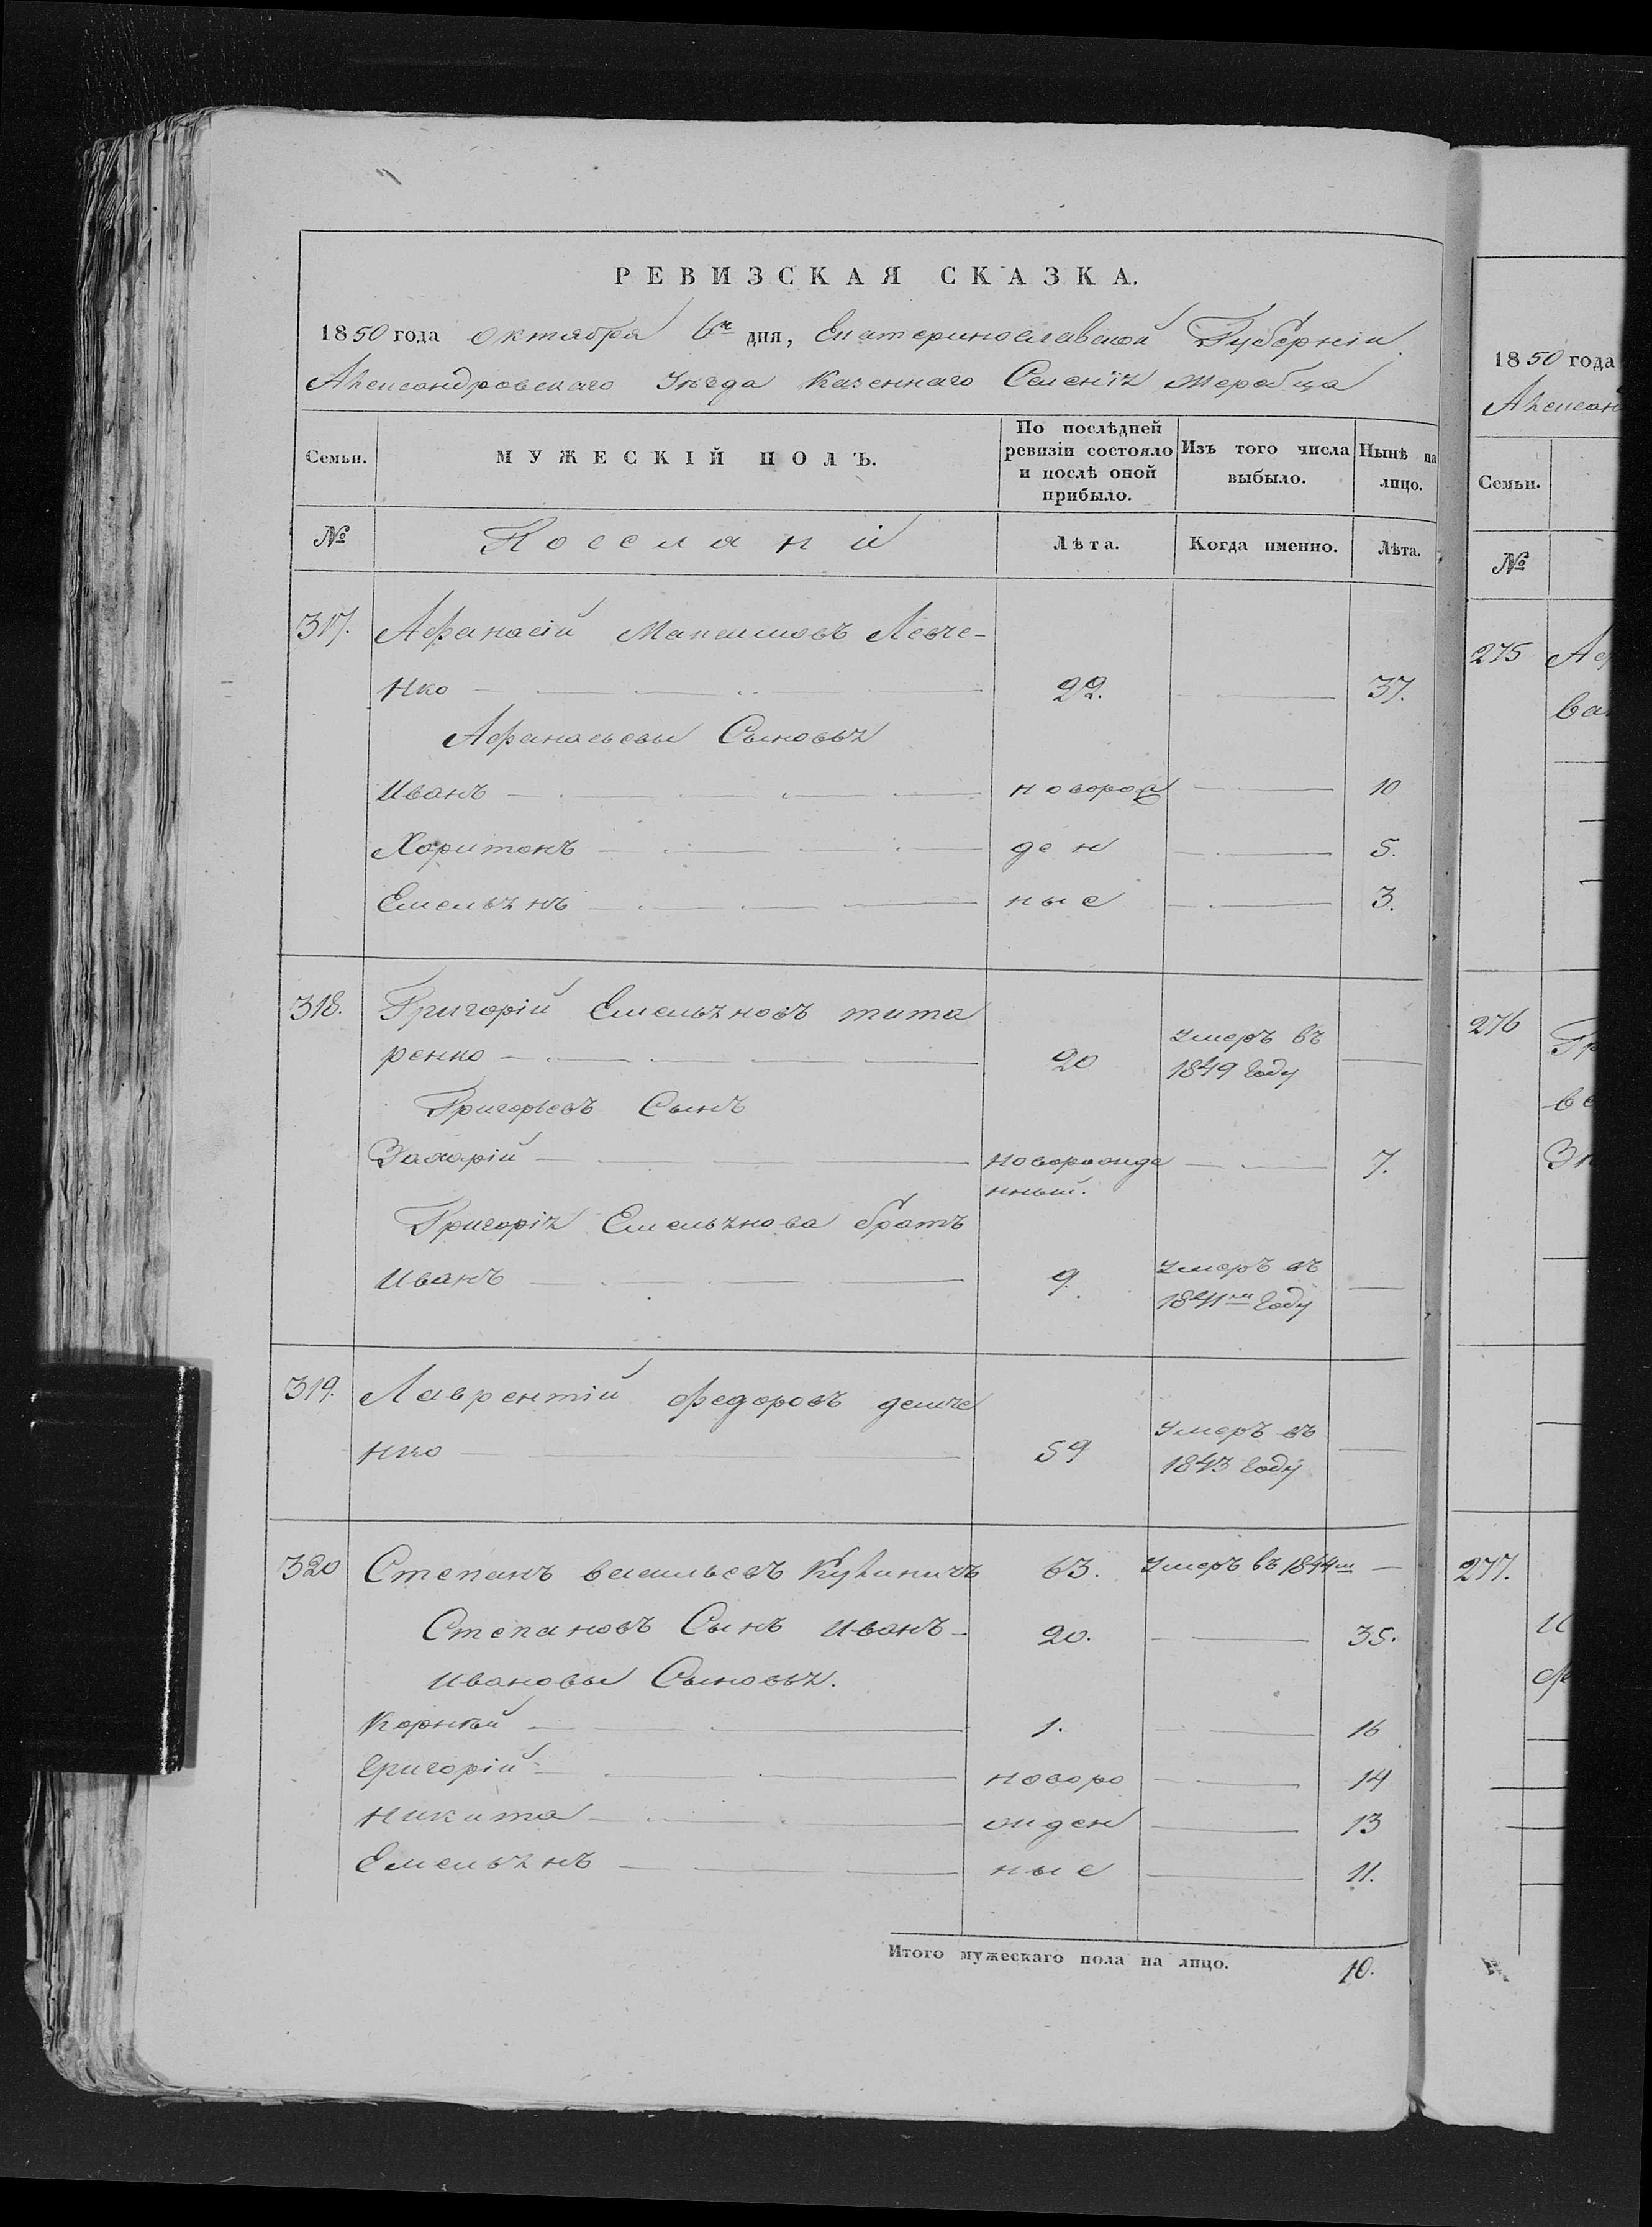 РЕВИЗСКАЯ СКАЗКА.
1850 года октября 6го дня, Екатеринославской Губерніи
Александровскаго Уезда Казеннаго Селенія Жеребца
Семьи.
МУЖЕСКІЙ ПОЛЪ.
По послѣдней ревизіи состояло и послѣ оной прибыло.
Изъ того числа выбыло.
Нынѣ на лицо.
№
Лѣта.
Когда именно.
Лѣта.
317. Афанасій Максимовъ Левче-
нко 22. 37.
Афанасьевы Сыновья
Иванъ новорож 10
Харитонъ ден 5.
Емельянъ ные 3.
318. Григорій Емельяновъ тита
ренко 20 умеръ въ 1849 году
Григорьевъ Сынъ
Захарій новорожде нный. 7.
Григорія Емельянова братъ
Иванъ 9. умеръ въ 1841м году
319. Лаврентій федоровъ демче
нко 59 Умеръ въ 1843 году
320 Степанъ васильевъ 63. Умеръ въ 1844м
Степановъ Сынъ Иванъ 20. 35.
Ивановы Сыновья.
Корнѣй 1. 16
Григорій новоро 14
Никита жден 13
Емельянъ ные 11.
Итого мужескаго пола на лицо. 10.
1850 года
Александ
Семьи.
№
275
276
277.